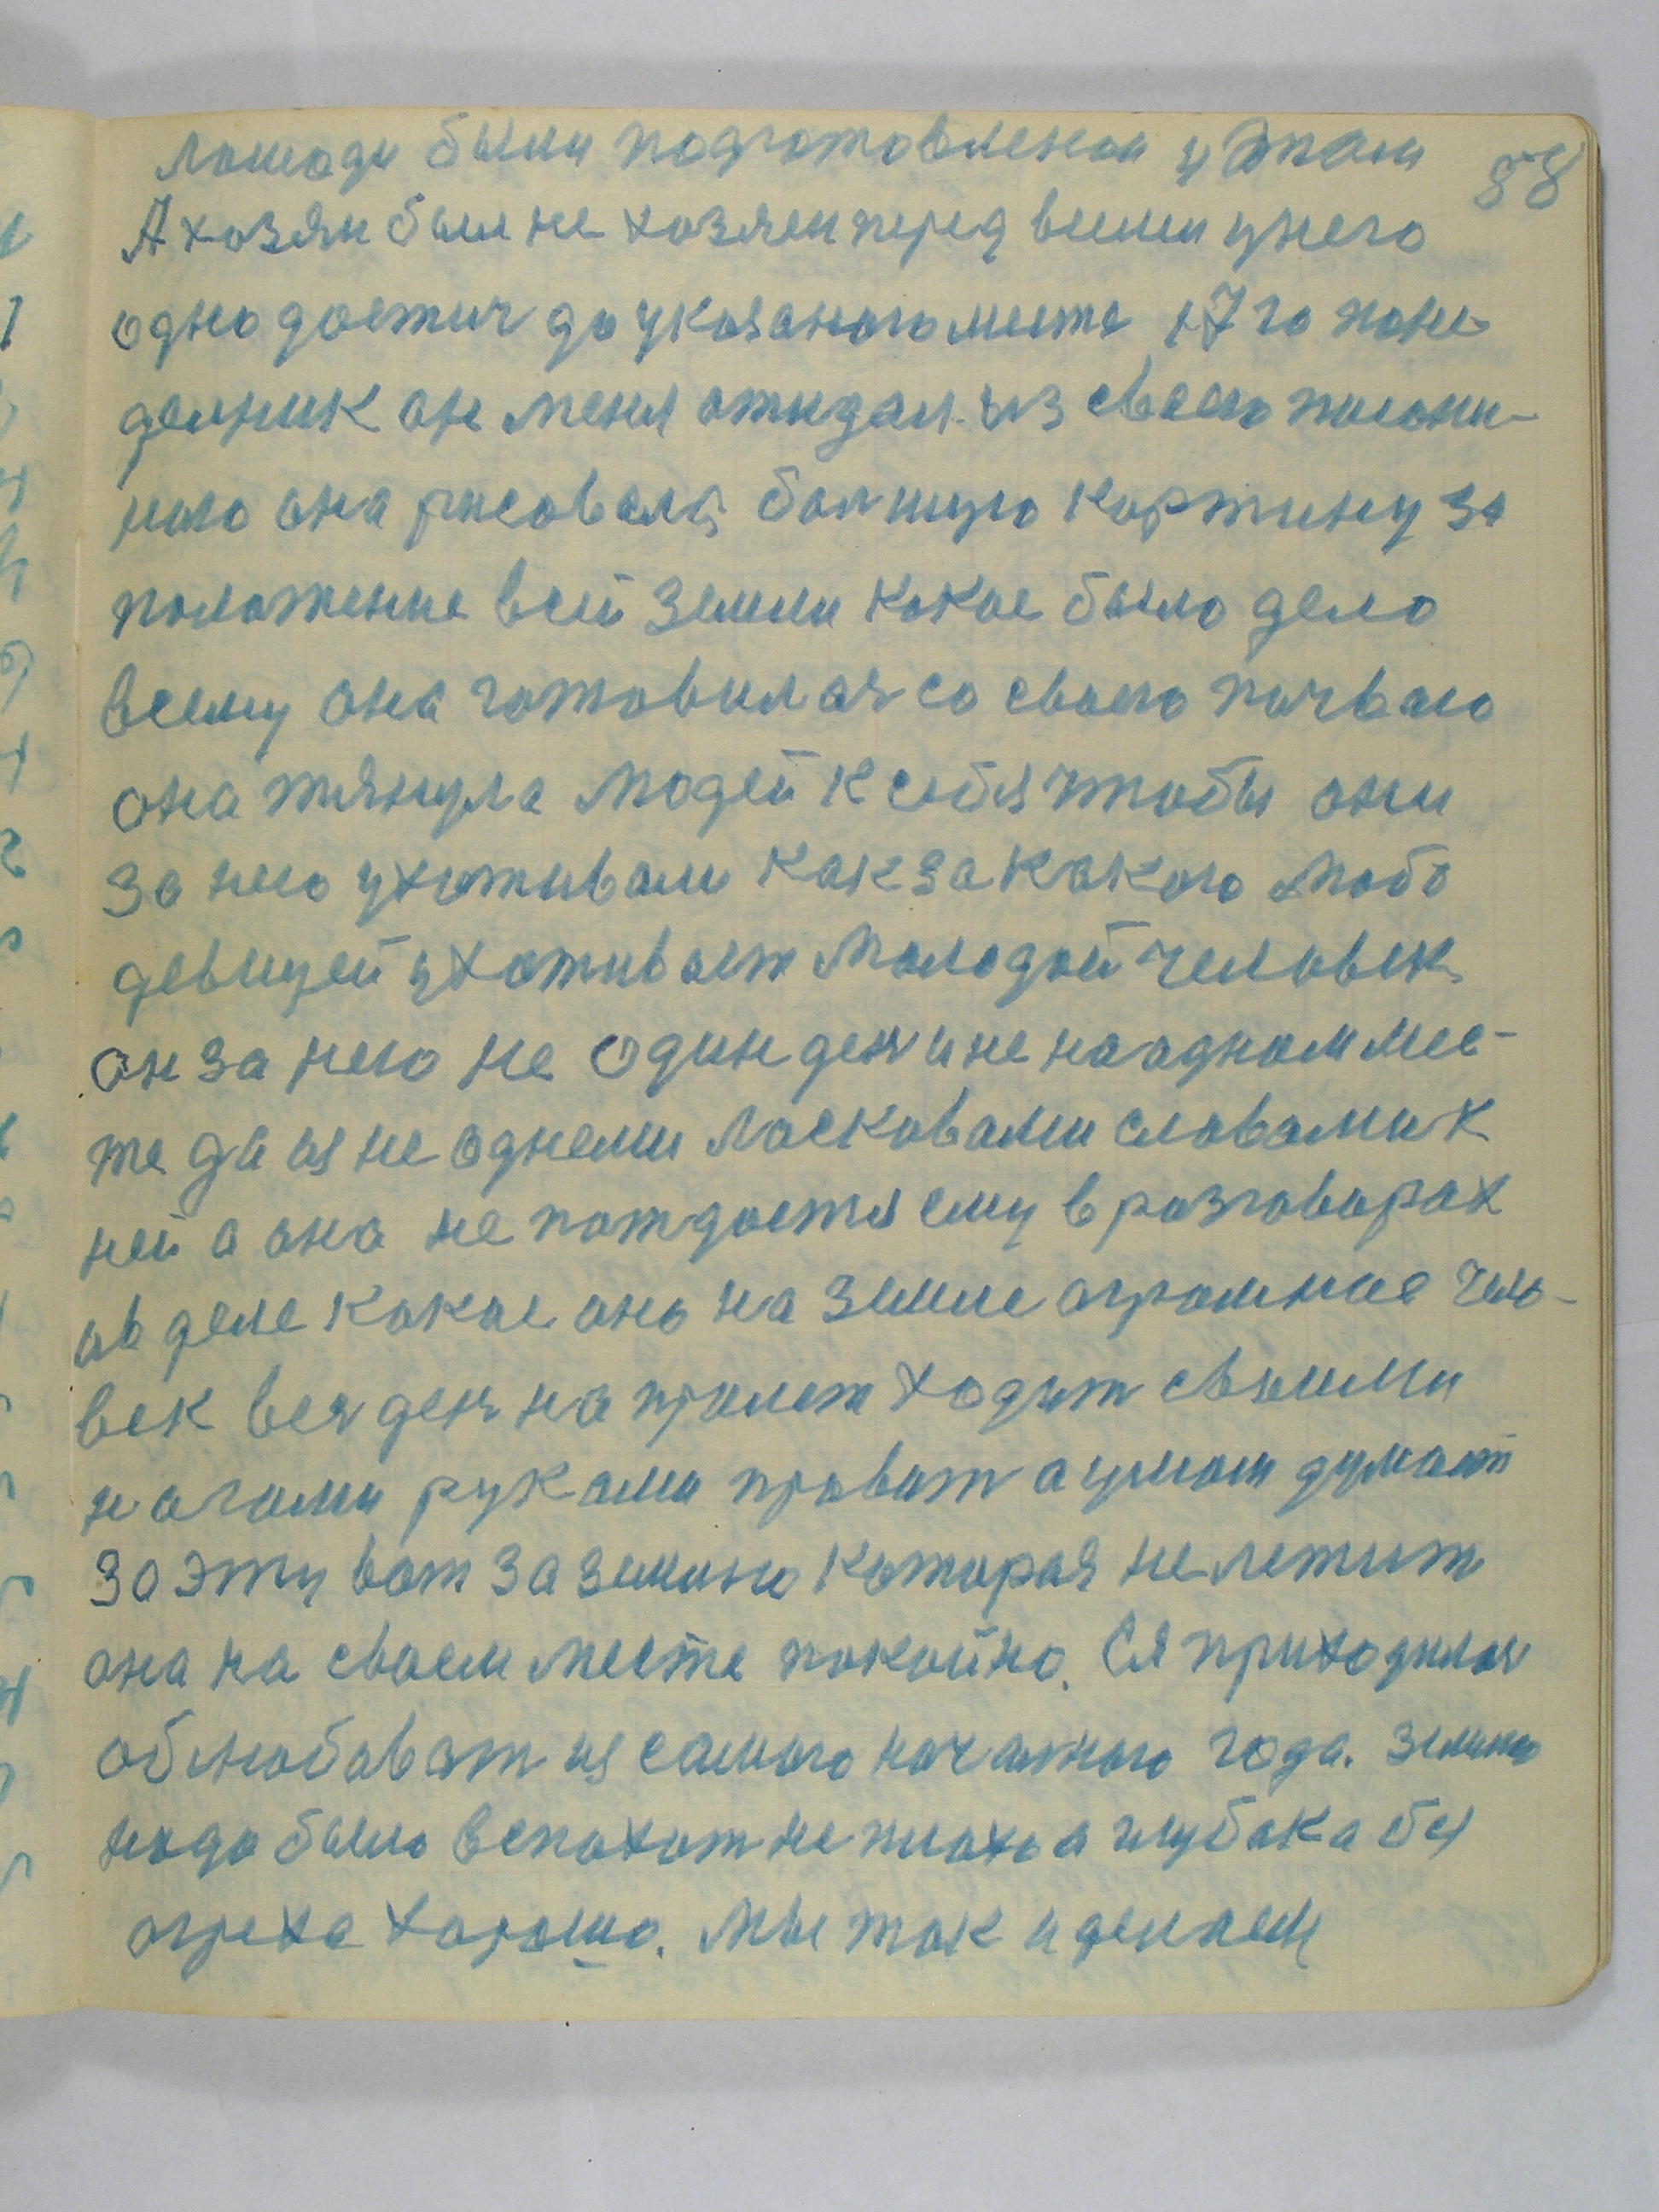 лошади были подготовлены у этом 58
А хозяи был не хозяен перед всими унего
одно достич до указаного места 17 го поне-
делник он меня ожидал. из своего
она рисовала болшую картину за
положение всей земли какое было дело
всему она готовилас со своего
она тянула людей к себя чтобы они
за него ухаживали как за какого любо
девицей ухаживает молодой человек.
он за него не один ден и не наодном мес-
те да и не однеми ласковами словами к
ней а она не поддаетя ему в разговорах
ав деле какое оно на земле огромное чело-
век вес ден на пролет ходит своими
ногами руками правит а умом думает
за эту вот за землю которая не летит
она на своем месте покойно. Ея приходилос
облюбават из самого начатного года. землю
надо было вспахат не плохо а глубака бес
огреха хорошо. Мы так и делаем